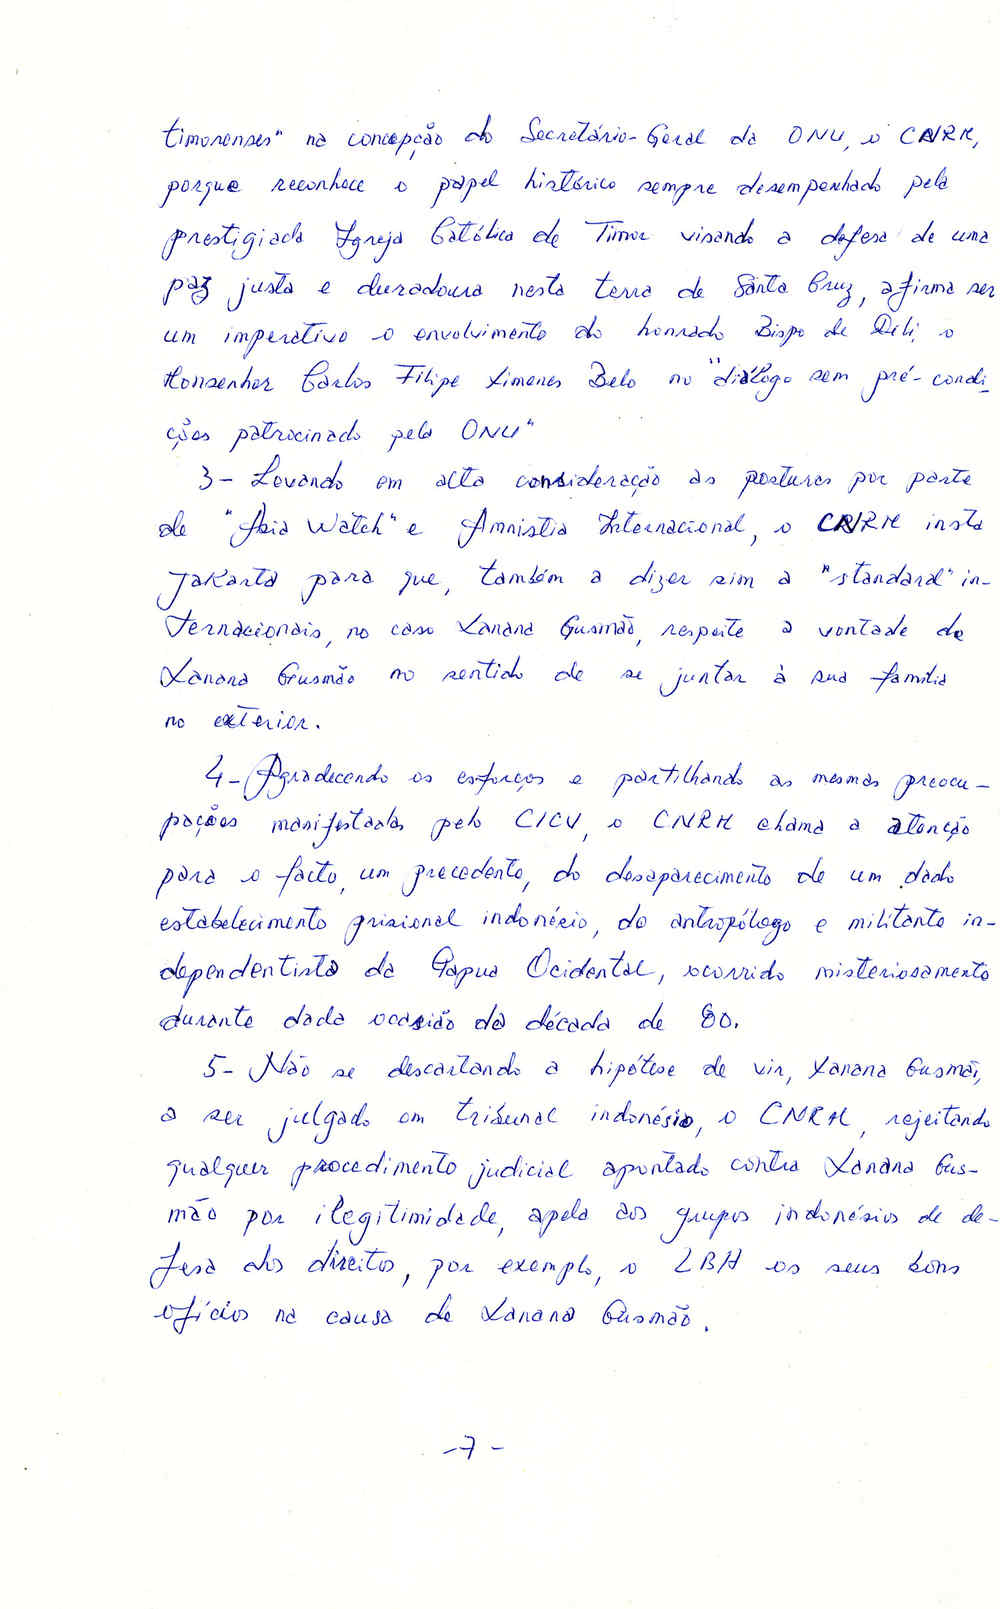 timorenses" na concepção do Secretário-Geral da ONU, o CNRM,
porque reconhece o papel histórico sempre desempenhado pela
prestigiada Igreja Católica de Timor visando a defesa de uma
paz justa e duradoura nesta terra de Santa Cruz, afirma ser
um imperativo o envolvimento do honrado Bispo de Dili, o
Monsenhor Carlos Filipe Ximenes Belo no "diálogo sem pré-condi-
ções patrocinado pela ONU"
3- Levando em alta consideração as posturas por parte
de "Asia Watch" e Amnistia Internacional, o CNRM insta
Jakarta para que, também a dizer sim a "standard" in-
ternacionais, no caso Xanana Gusmão, respeite a vontade de
Xanana Gusmão no sentido de se juntar à sua família
no exterior.
4- Agradecendo os esforços e partilhando as mesmas preocu-
pações manifestadas pelo CICV, o CNRM chama a atenção
para o facto, um precedente, do desaparecimento de um dado
estabelecimento prisional indonésio, do antropólogo e militante in-
dependentista da Papua Ocidental, ocorrido misteriosamente
durante dada ocasião da década de 80.
5- Não se descartando a hipótese de vir, Xanana Gusmão,
a ser julgado em tribunal indonésio, o CNRM, rejeitando
qualquer procedimento judicial apontado contra Xanana Gus-
mão por ilegitimidade, apela aos grupos indonésios de de-
fesa dos direitos, por exemplo, o LBH os seus bons
ofícios na causa de Xanana Gusmão.
-7-